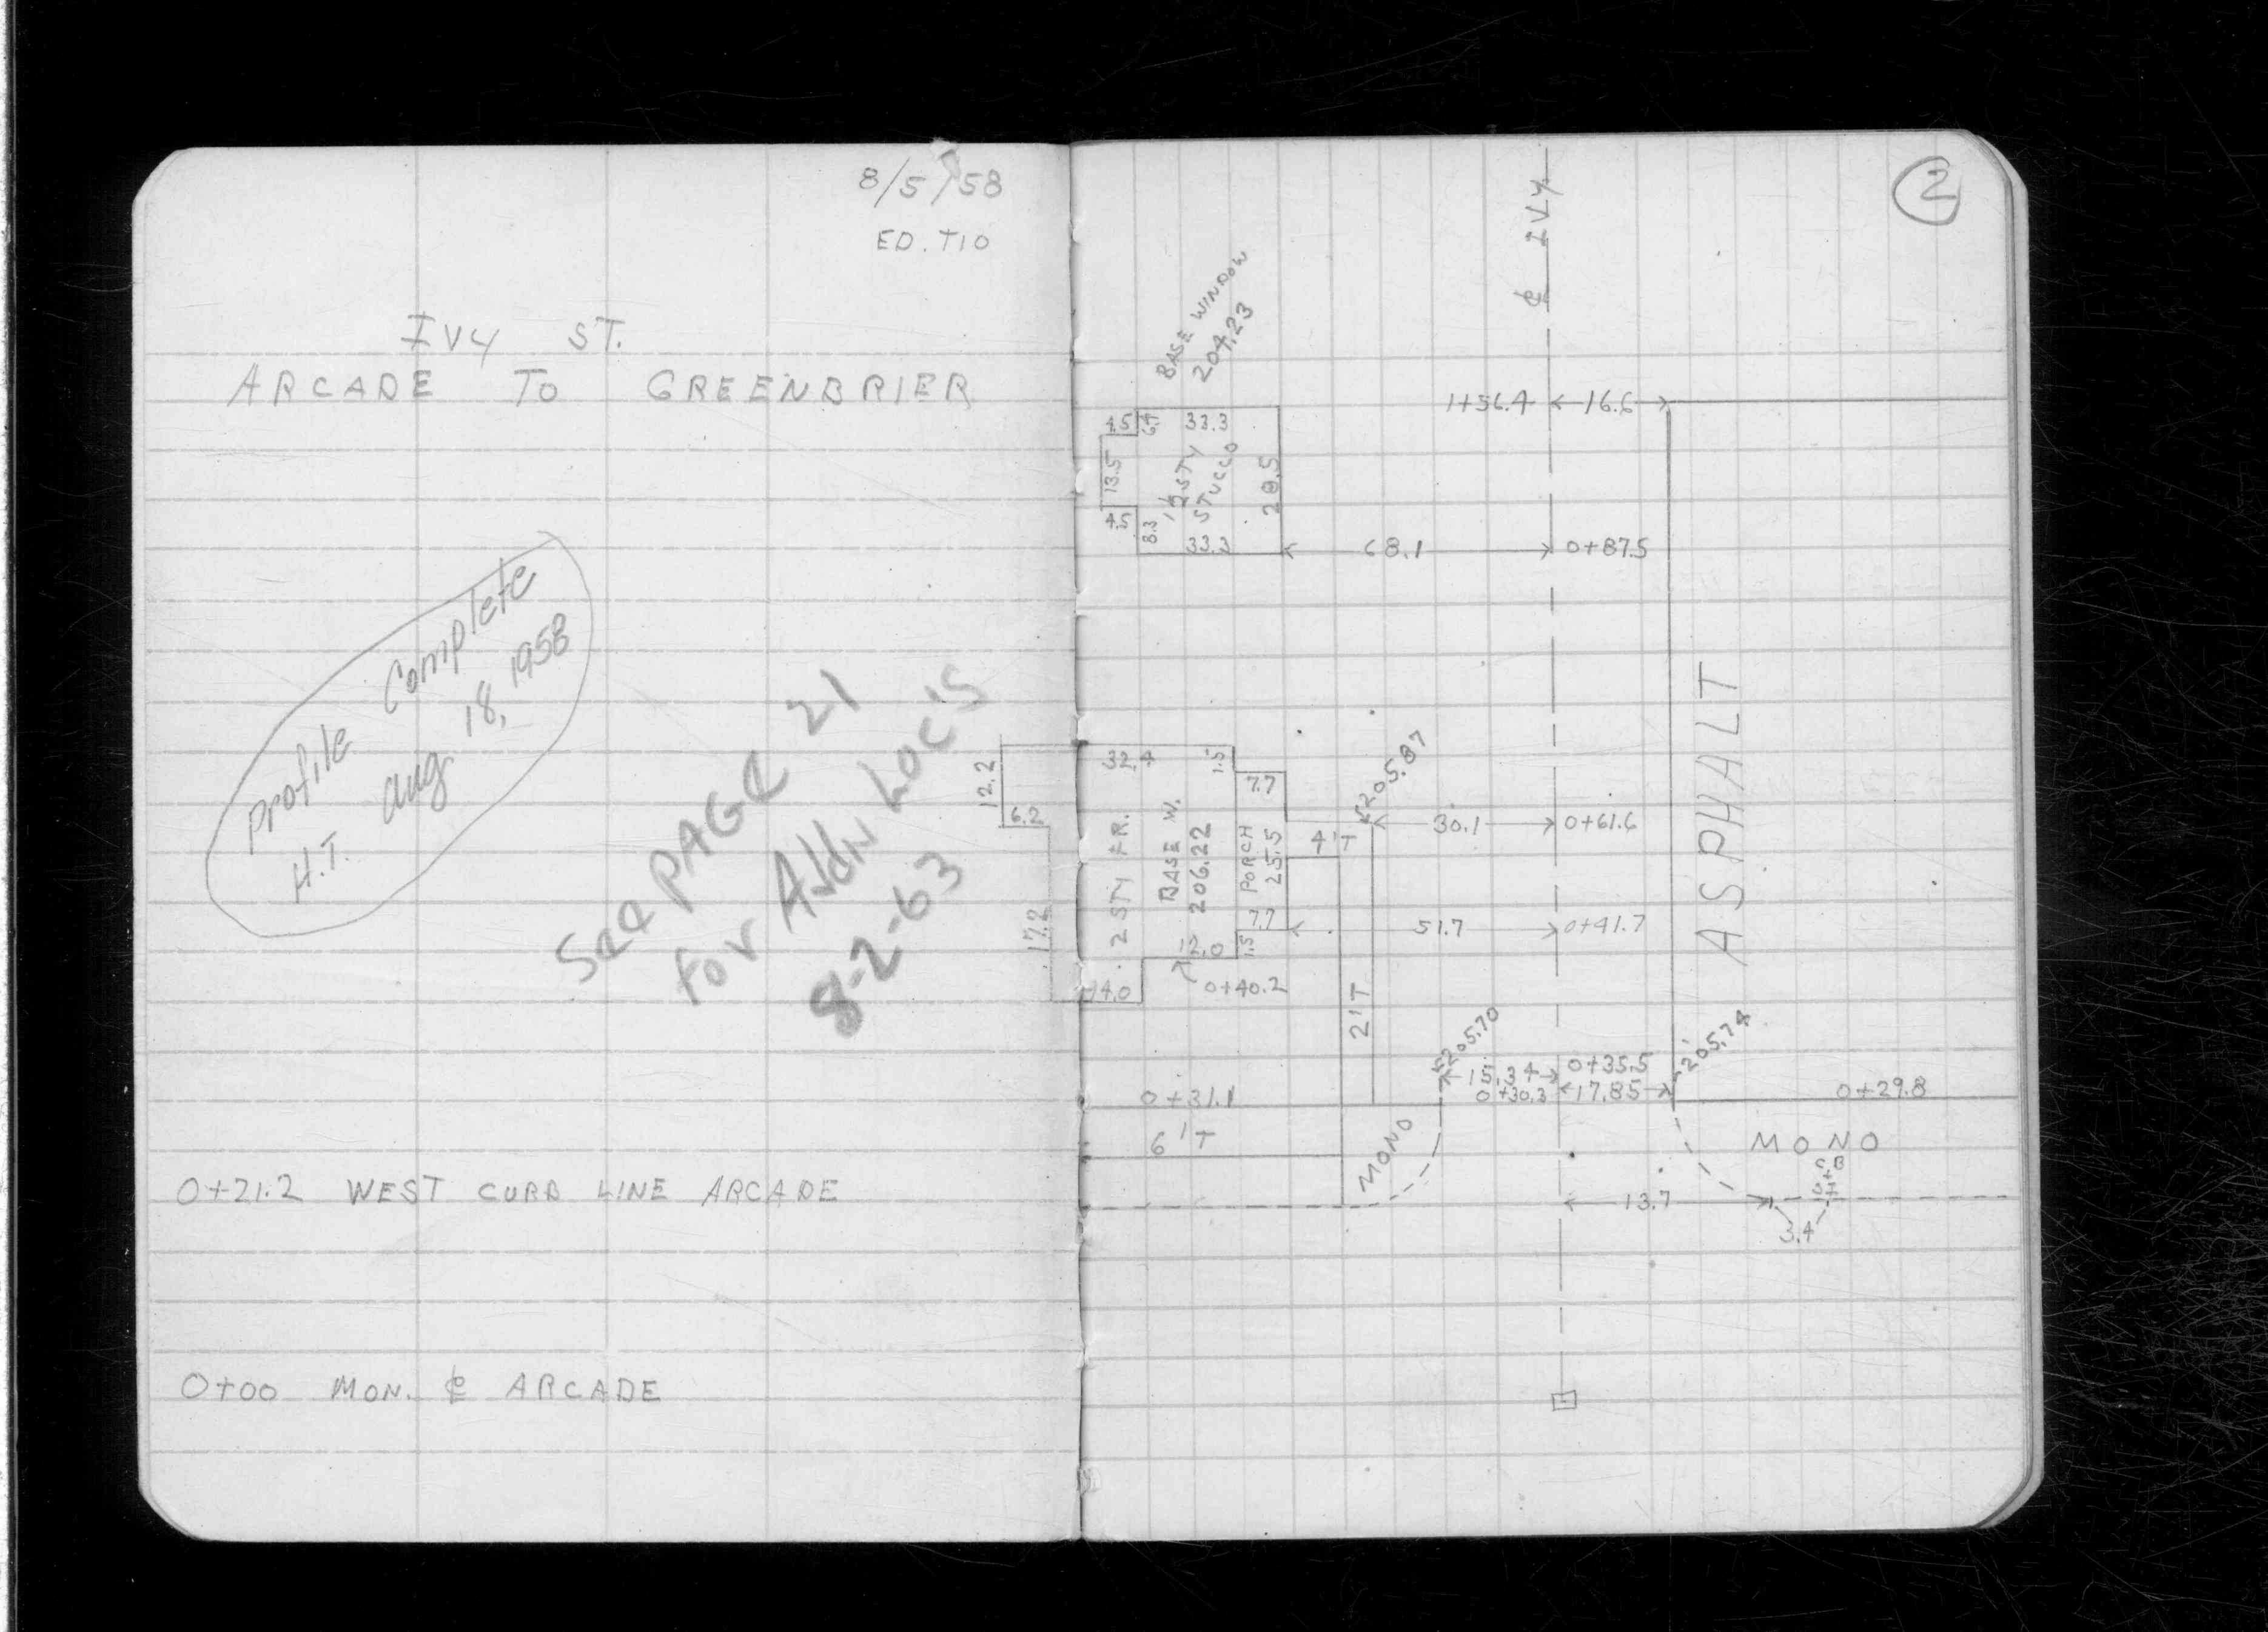 8/5/58
ED. TIO
IVY ST.
ARCADE TO GREENBRIER
Profile Complete
H.T. Aug 18, 1958
See PAGE 21
for Addn Loc's
8-2-63
0+21.2 WEST CURB LINE ARCADE
0+00 MON. ℄ ARCADE
2
℄ IVY
BASE WINDOW
204.23
1+56.4 16.6
4.5 6.9 33.3
13.5 1½ STY
STUCCO
28.5
4.5 8.3 33.3
68.1 0+87.5
ASPHALT
12.2
6.2
17.2
32.4 1.5
7.7
2 STY FR.
BASE W.
206.22
PORCH
25.5
205.87
4'T
30.1 0+61.6
7.7
51.7 0+41.7
12.0 1.5
14.0 0+40.2
2'T
205.70
205.78
15.34 0+35.5
0+30.3 17.85
0+31.1
0+29.8
6'T
MONO
MONO
C.B.
13.7
3.4